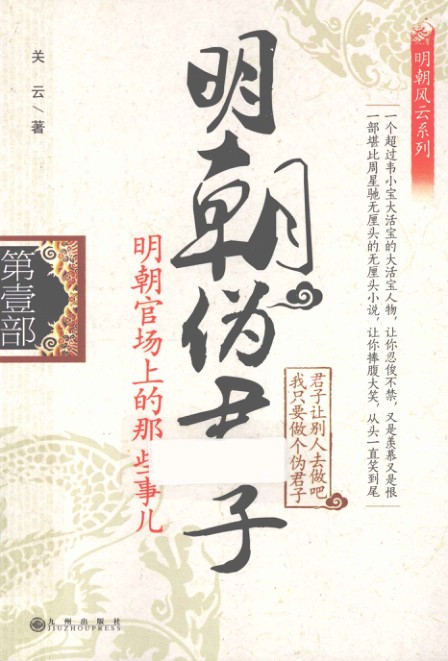 明朝风云系列
一个超过韦小宝大活宝的大活宝人物，让你忍俊不禁，又是羡慕又是恨
一部堪比周星驰无厘头的无厘头小说，让你捧腹大笑，从头一直笑到尾
明朝伪君子
君子让别人去做吧
我只要做个伪君子
明朝官场上的那些事儿
关云/著
第壹部
九州出版社
JIUZHOUPRESS